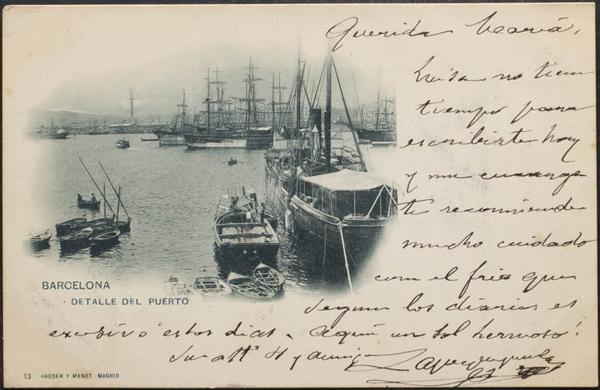 Querida María,
Luisa no tiene
tiempo para
escribirte hoy
y me encarga
te recomiende
mucho cuidado
con el frío que
segun los diarios es
excesivo estos dias. Aquí un sol hermoso!
Su att º y amigo
BARCELONA
DETALLE DEL PUERTO
13 HAUSER Y MENET. MADRID